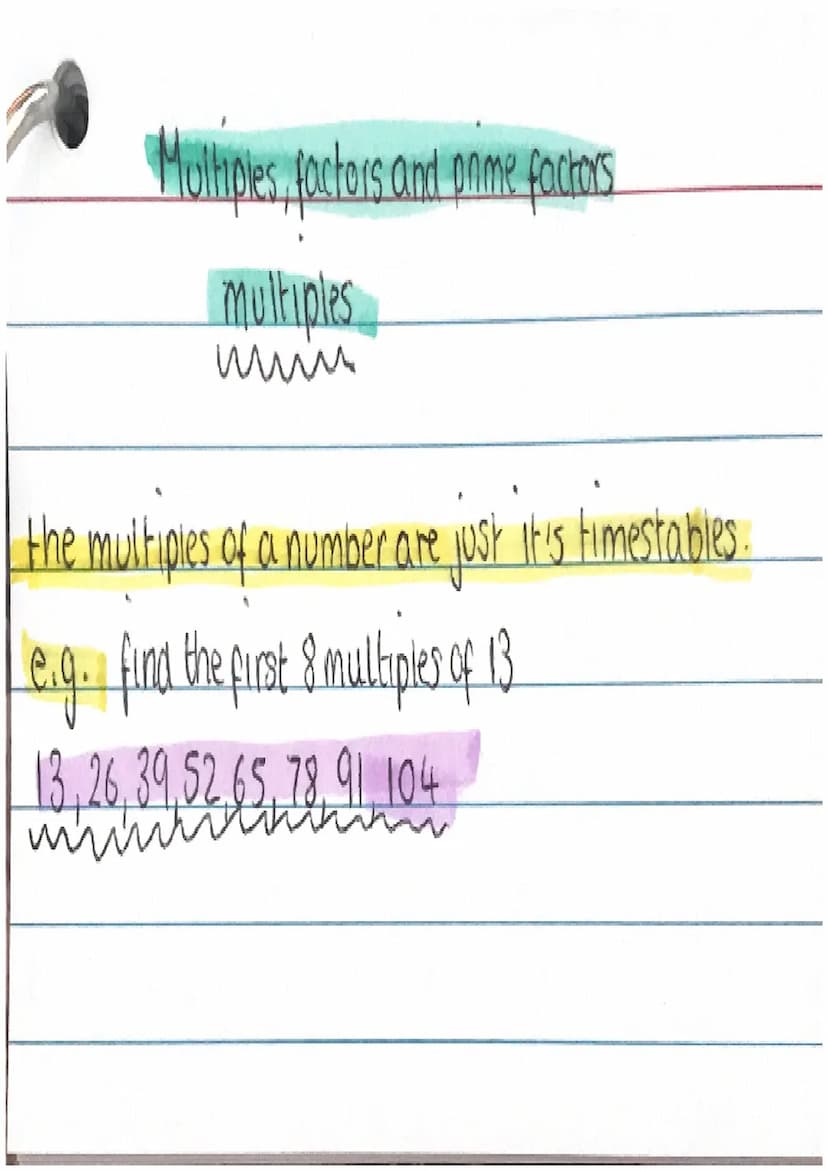 Multiples, factors and prime factors
multiples
the multiples of a number are just it's timestables.
e.g. find the first 8 multiples of 13
13, 26, 39, 52, 65, 78, 91, 104